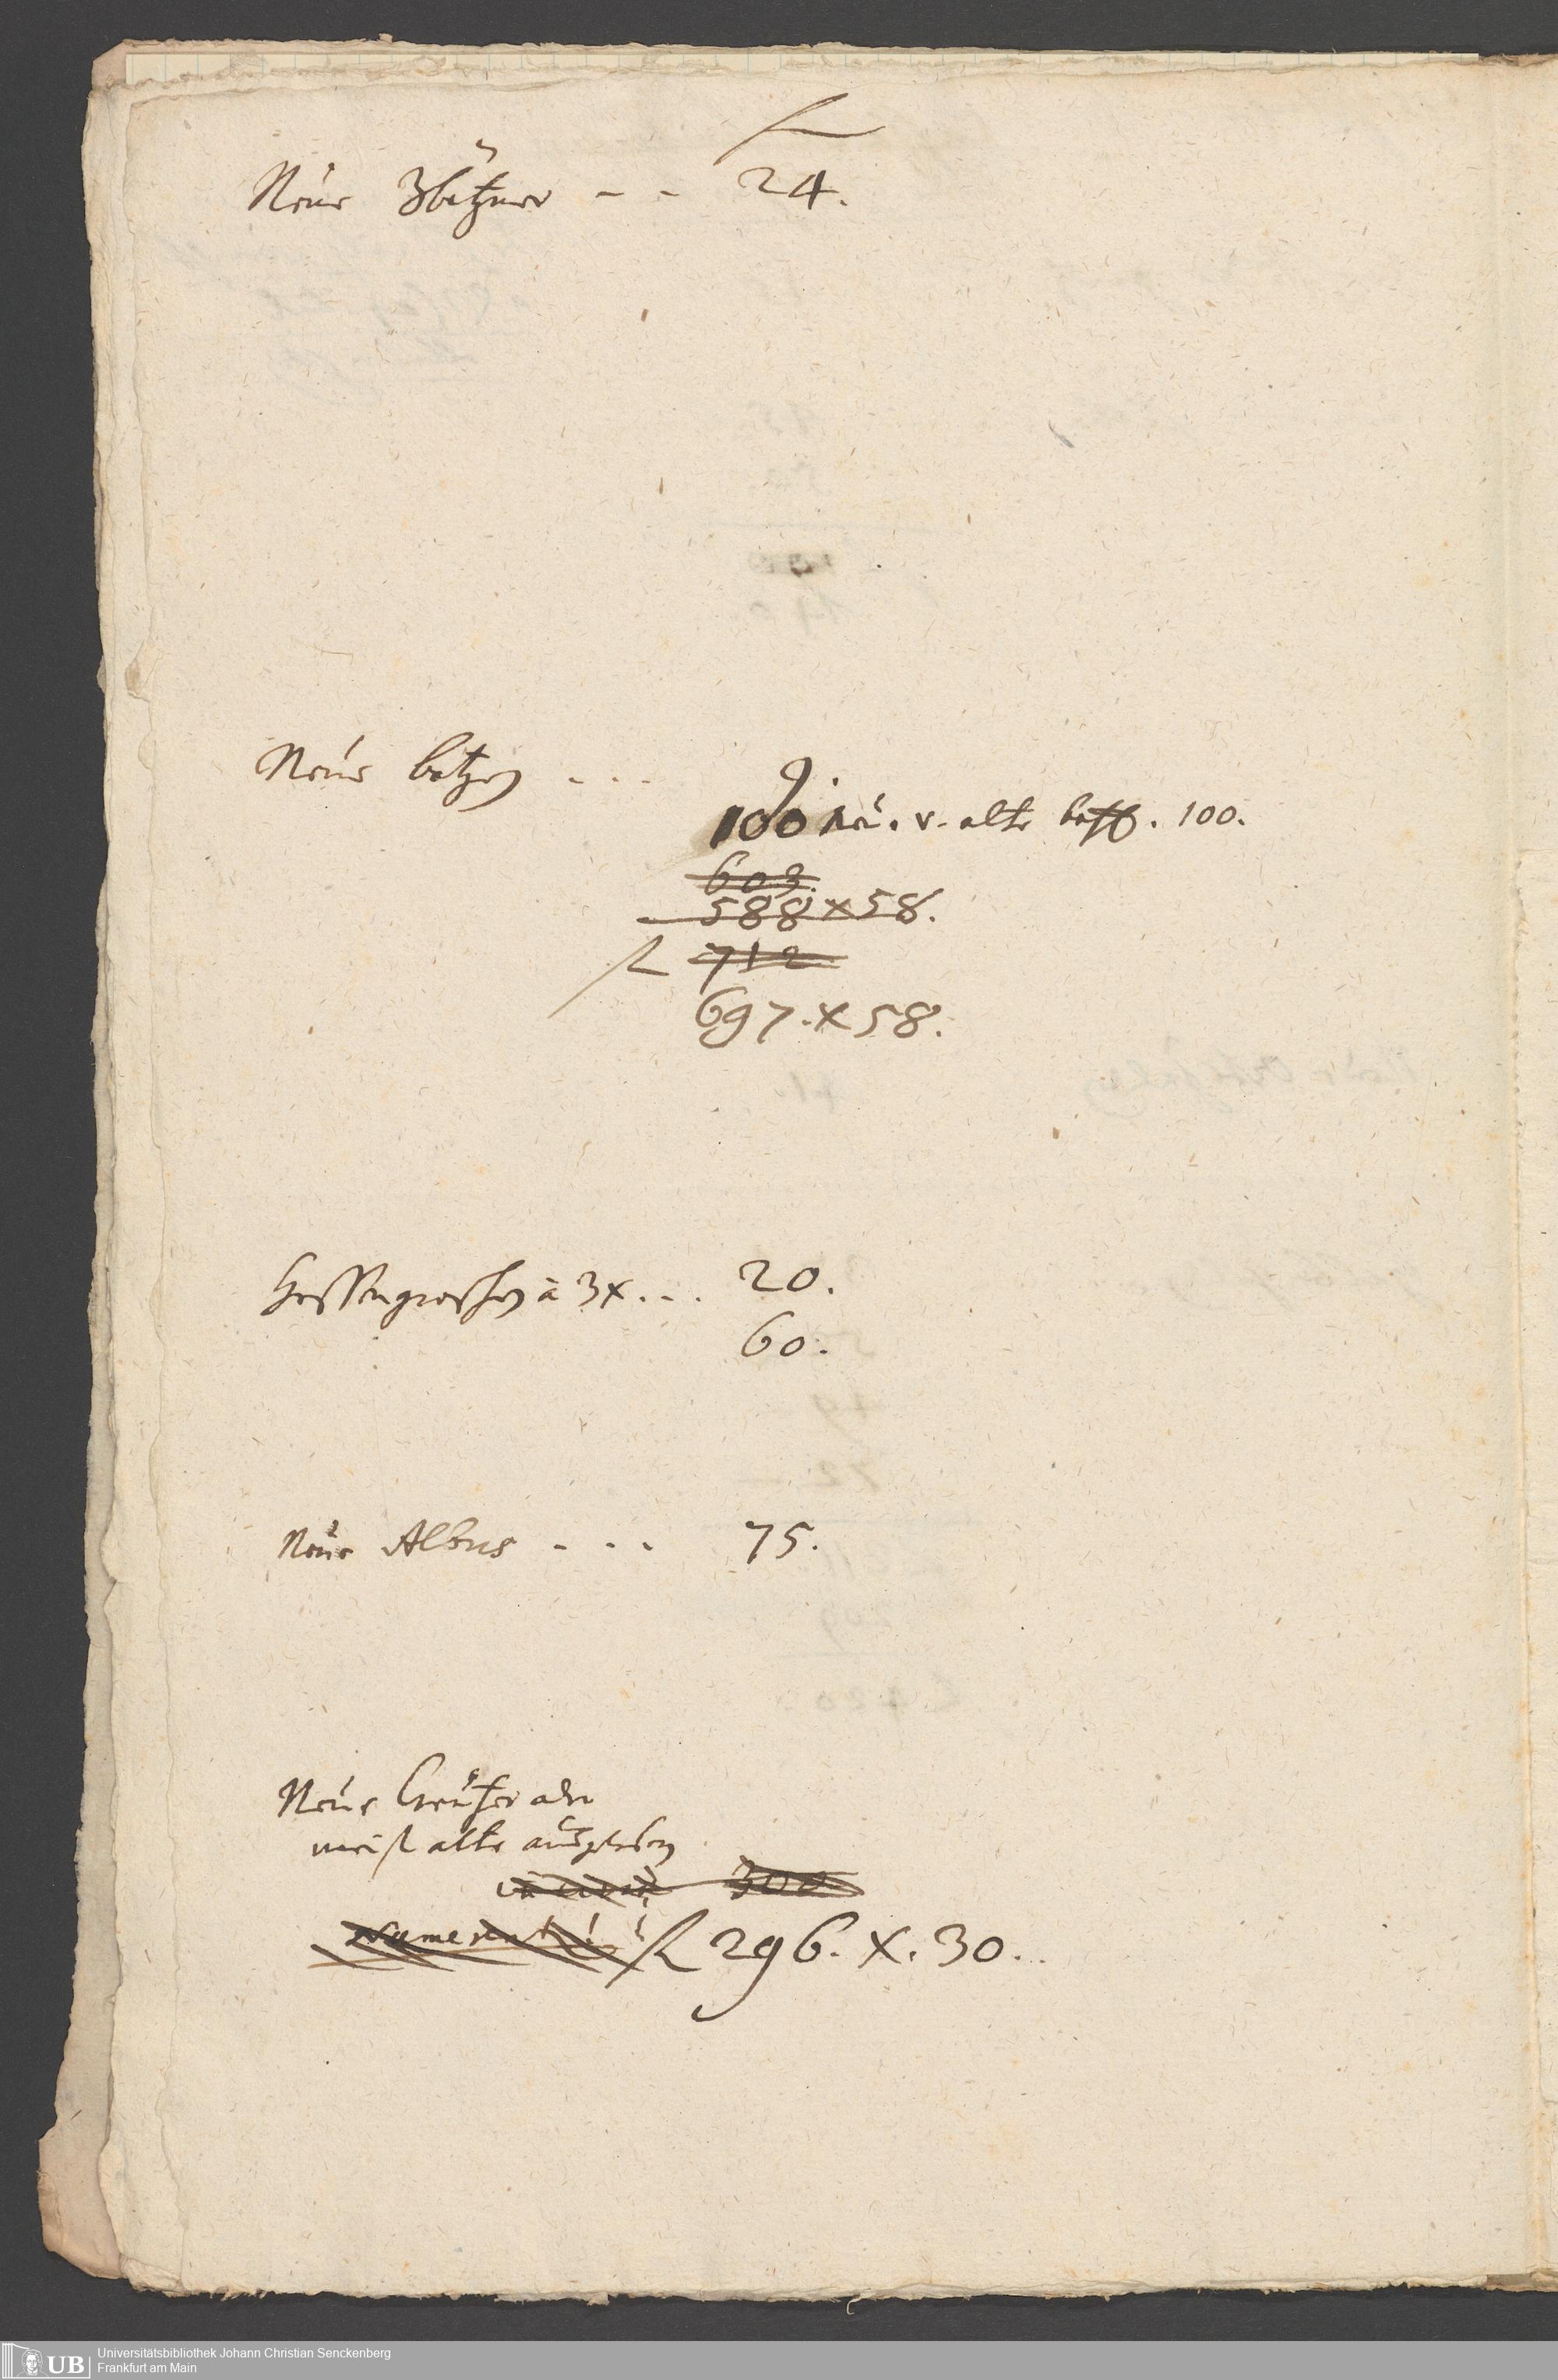 f
Neue 3bätzner - - 24.
Neue batzen . . . 9.
100 neu. v. alte batz. 100.
603.
588 x 58.
f 712
697. x 58.
Hessengroschen à 3x . . . 20.
60.
Neue Albus - . . 75.
Neue Creützer aber
meist alte außgeben
300
f 296. x. 30.
Universitätsbibliothek Johann Christian Senckenberg
UB Frankfurt am Main